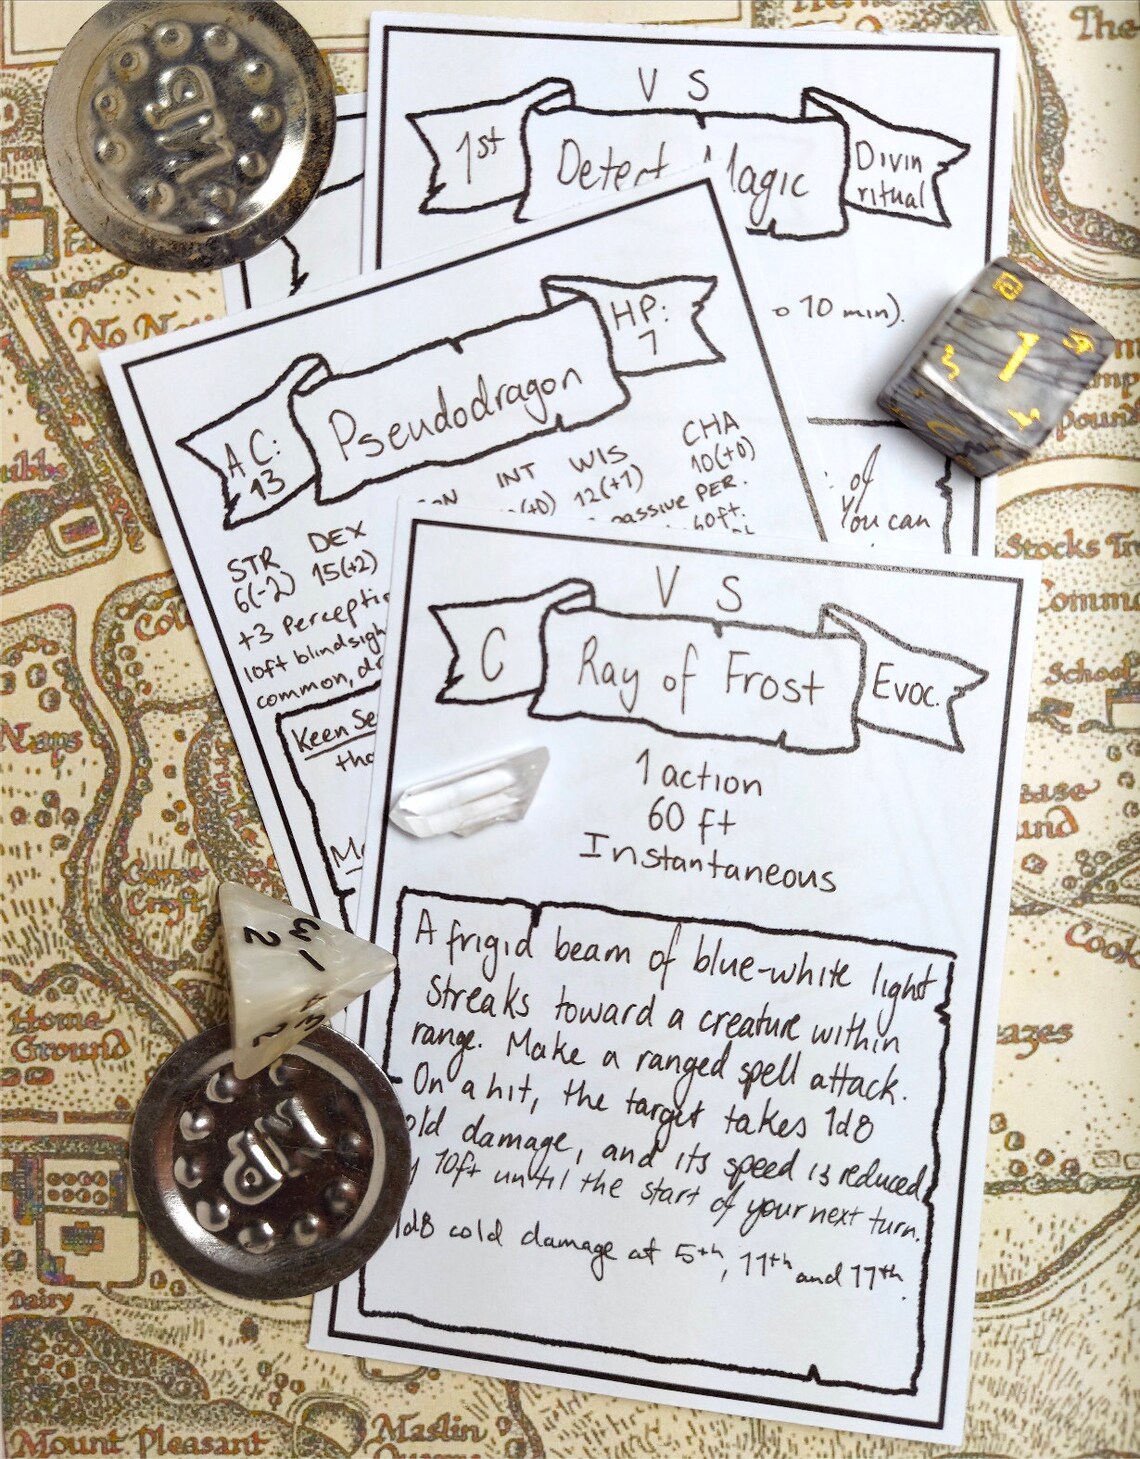 V S
1st
Detect Magic
Divin
ritual
10 min).
of
You can
HP:
7
Pseudodragon
AC:
13
STR DEX INT WIS CHA
6(-2) 15(+2) (+0) 12(+1) 10(+0)
+3 Perceptio passive PER.
10ft blindsigh 60ft.
common, dr
Keen Se
tho
V S
C
Ray of Frost
Evoc.
1 action
60 ft
Instantaneous
A frigid beam of blue-white light
streaks toward a creature within
range. Make a ranged spell attack.
On a hit, the target takes 1d8
old damage, and its speed is reduced
y 10ft until the start of your next turn.
1d8 cold damage at 5th, 11th and 17th.
3
1
2
3
1
The
No
Stocks Tr
Comm
School
Naps
Gorse
Croft
Cook
Home
Ground
azes
Dairy
Mount Pleasant
Maslin